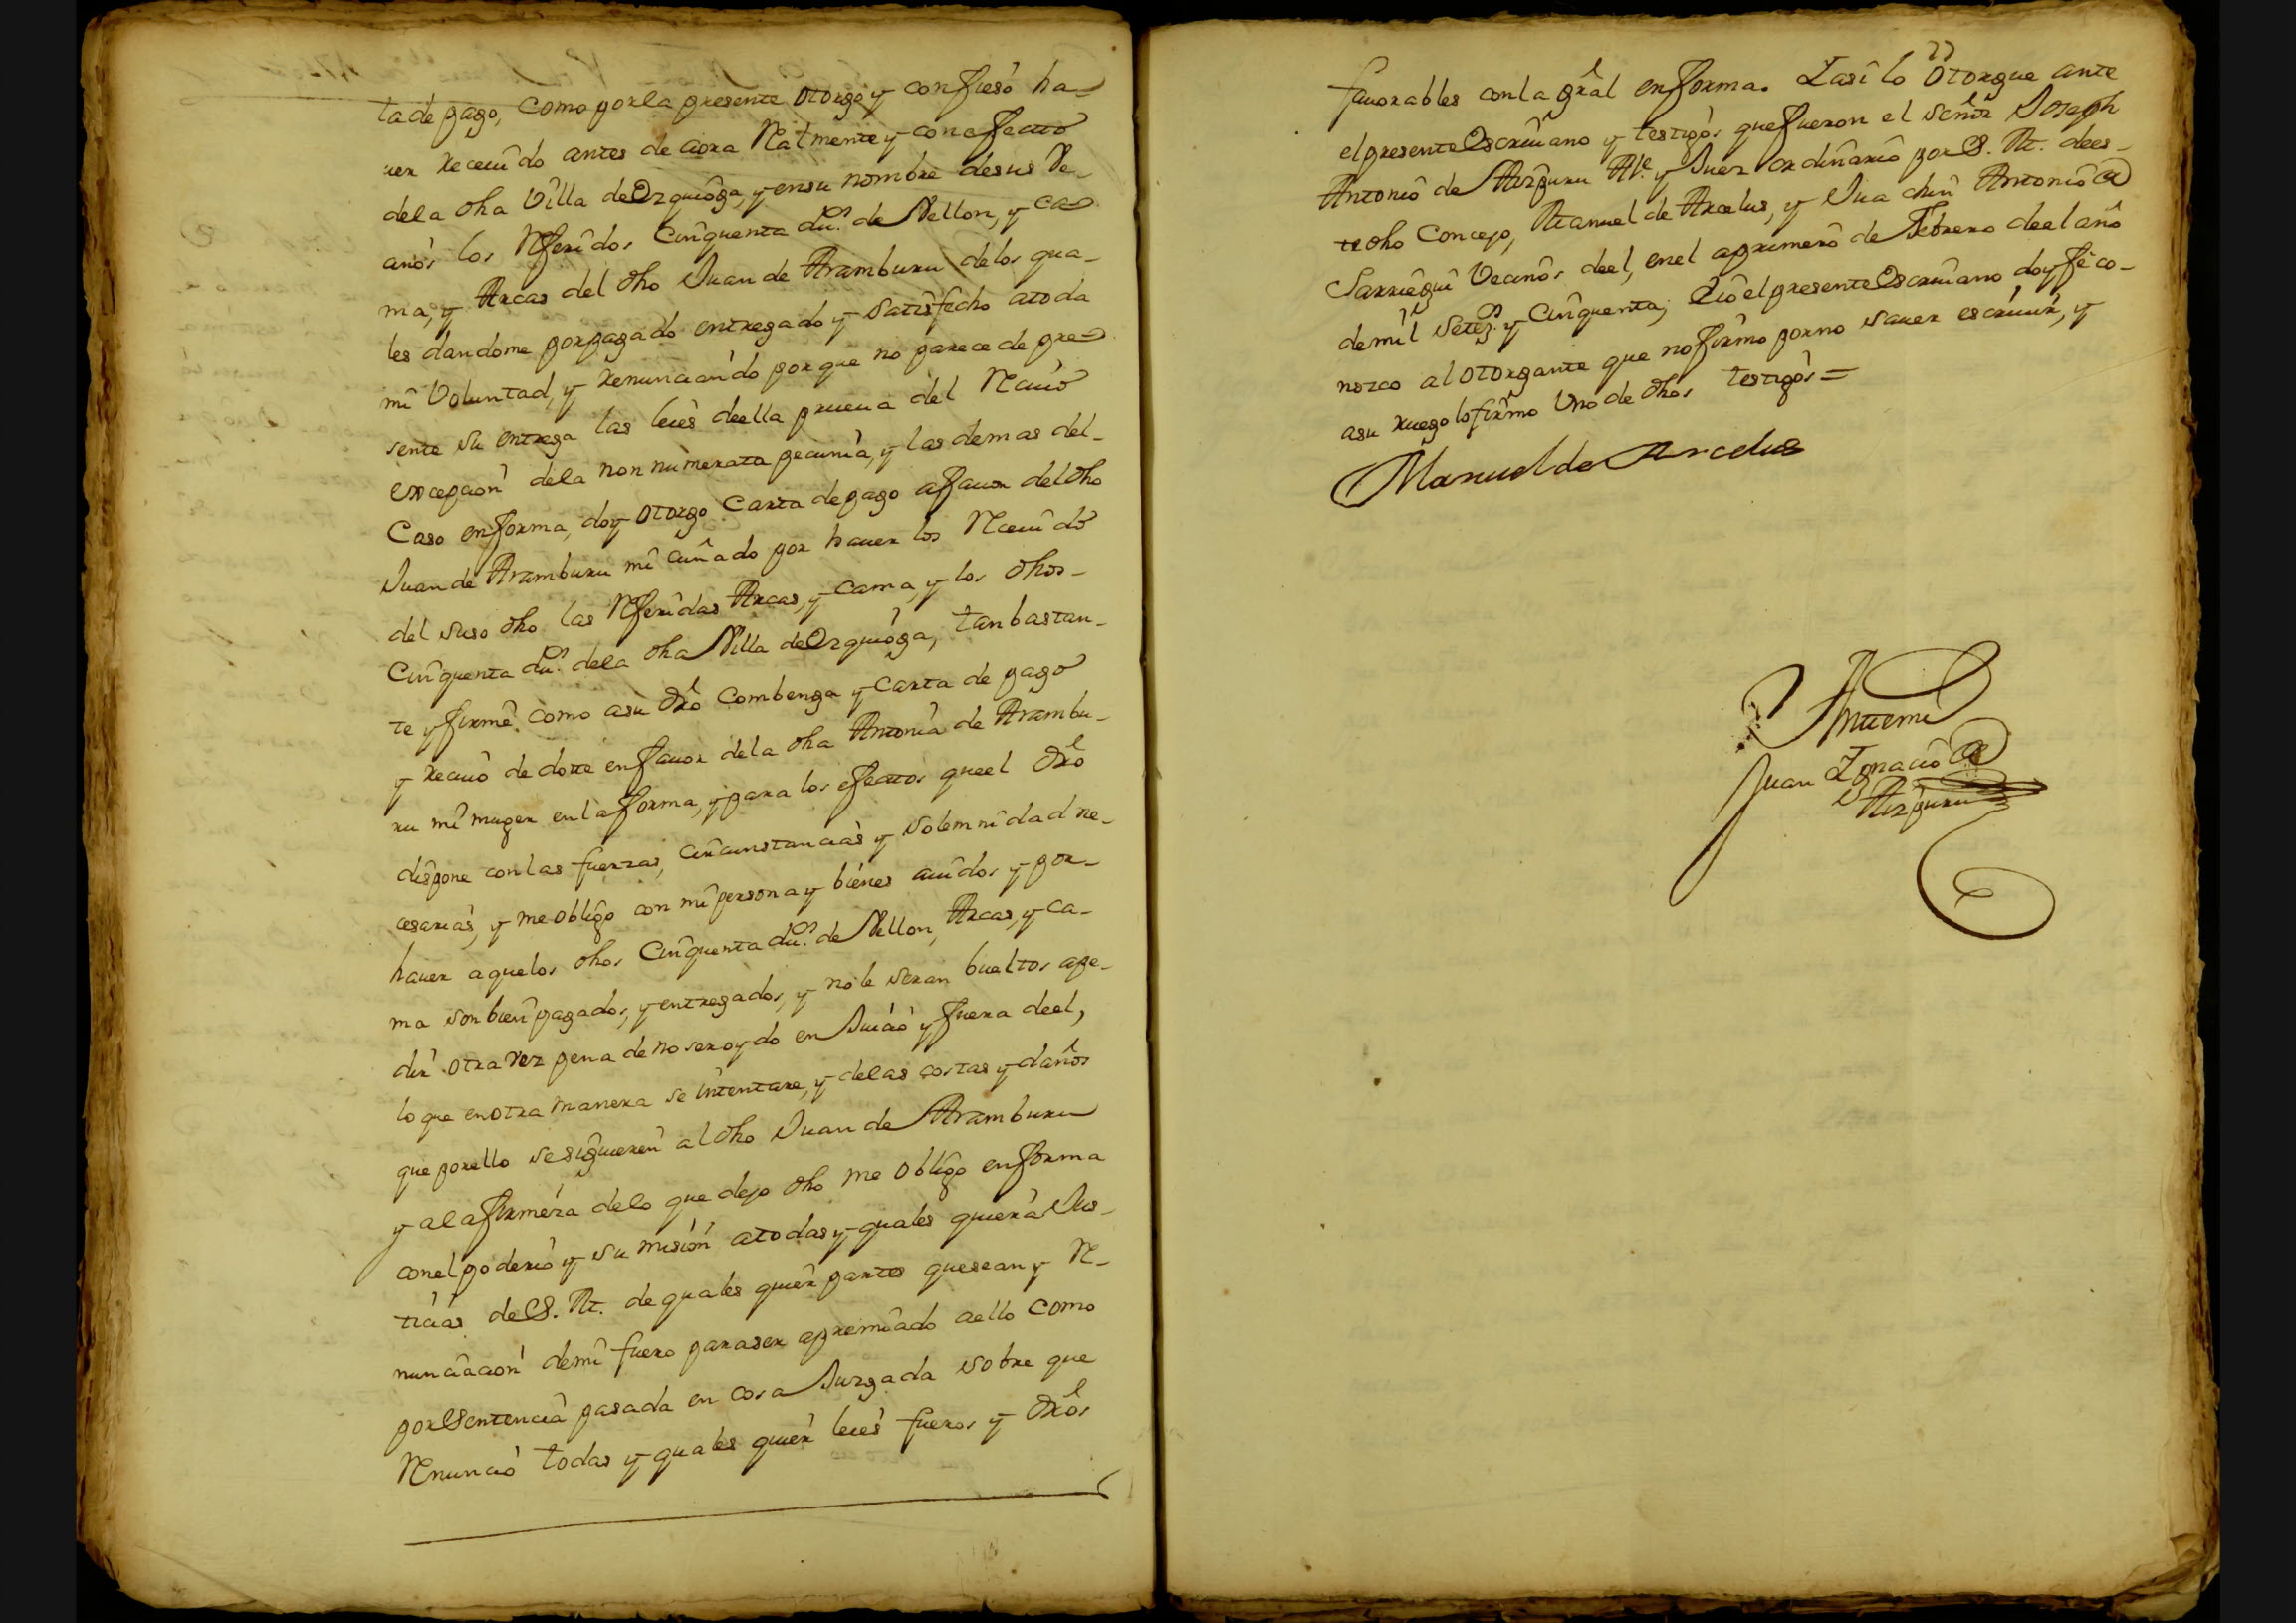 ta de pago, como por la presente otorgo y confiesó ha-
uer receuido antes de aora Realmente y con efecto
de la dha Villa de Ezquioga, y en su nombre de sus Ve-
cinos los Referidos Cinquenta du.s de Vellon, y ca-
ma, y Arcas del dho Juan de Aramburu de los qua-
les dandome por pagado entregado y satisfecho a toda
mi Voluntad, y renunciando por que no parece de pre-
sente su entrega las leies de ella prueua del Reciuo
excepcion de la non numerata pecunia, y las demas del-
Caso en forma, doy otorgo Carta de pago a fauor del dho
Juan de Aramburu mi cuñado por hauer los Receuido
del suso dho las Referidas Arcas, y cama, y los dhos-
Cinquenta du.s de la dha Villa de Ezquioga, tan bastan-
te y firme como a su dro combenga y Carta de pago
y reciuo de dote en fauor de la dha Antonia de Arambu-
ru mi muger en la forma, y para los efectos que el dro
dispone con las fuerzas, circunstancias y solemnidad ne-
cesarias, y me obligo con mi persona y bienes auidos y por-
hauer a quelos dhos Cinquenta du.s de Vellon, Arcas, y ca-
ma son bien pagados, y entregados, y no le seran bueltos a pe-
dir otra vez pena de no ser oydo en Juicio y fuera de el,
lo que en otra manera se intentare, y de las costas y daños
que por ello se siguieren al dho Juan de Aramburu
y a la firmeza de lo que dejo dho me obligo en forma
con el poderio y su mision a todas y quales quiera Jus-
ticias de S. M. de quales quier partes que sean y Re-
nunciacion de mi fuero para ser apremiado a ello como
por Sentencia pasada en cosa Juzgada sobre que
Renuncio todas y quales quier leies fueros y dros
fauorables con la gral en forma. I asi lo otorgue ante
el presente Escriuano y testigos que fueron el señor Joseph
Antonio de Aizpuru Al.e y Juez ordinario por S. M. de es-
te dho Concejo, Manuel de Arcelus, y Jua chin Antonio de
Sarriegui Vecinos de el, en el a primero de Febrero de el año
de mil Setez.s y Cinquenta; E io el presente Escriuano doy fe co-
nozco al otorgante que no firmo por no sauer escriuir, y
a su ruego lo firmo Uno de dhos testigos =
Manuel de Arcelus
Antemi
Juan Ignacio de
Aizpuru